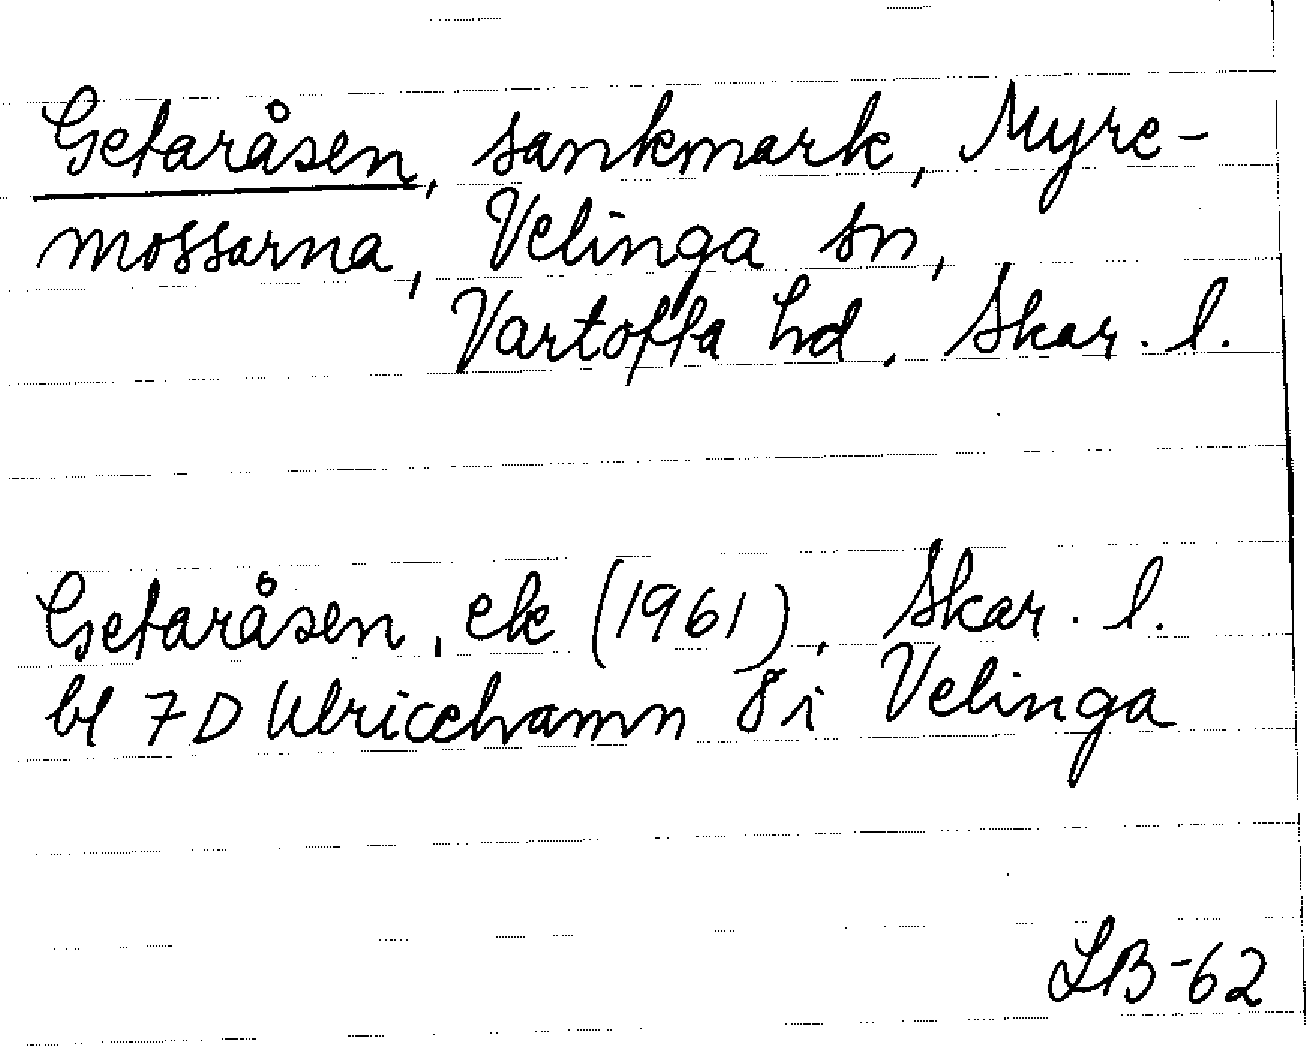 Getaråsen, sankmark, Myre-
mossarna, Velinga sn,
Vartofta hd, Skar. l.
Getaråsen, ek (1961), Skar. l.
bl 7D Ulricehamn 8i Velinga
LB-62